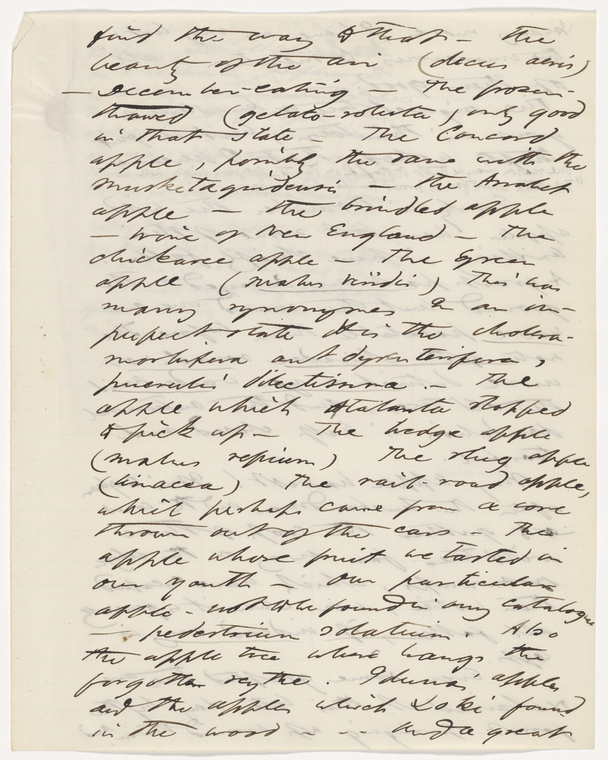 find the way to that — the
beauty of the air (decus aeris)
— December-eating — The frozen-
thawed (gelato-soluta) only good
in that state — The Concord
apple, possibly the same with the
musketaquidensis — The Assabet
apple — the brindled apple
— wine of New England — The
chickaree apple — The Green
apple (malus viridis) This has
many synonymes In an im-
perfect state it is the cholera-
morbifera aut dysenterifera,
puerulis dilectissima. — The
apple which Atalanta stopped
to pick up — The hedge apple
(malus sepium) The slug apple
(limacea) The rail-road apple,
which perhaps came from a core
thrown out of the cars — The
apple whose fruit we tasted in
our youth — Our particular
apple — not to be found in any catalogue
— pedestrium solatium. Also
the apple tree where hangs the
forgotten scythe. Iduna's apples
and the apples which Loki found
in the wood — - - and a great